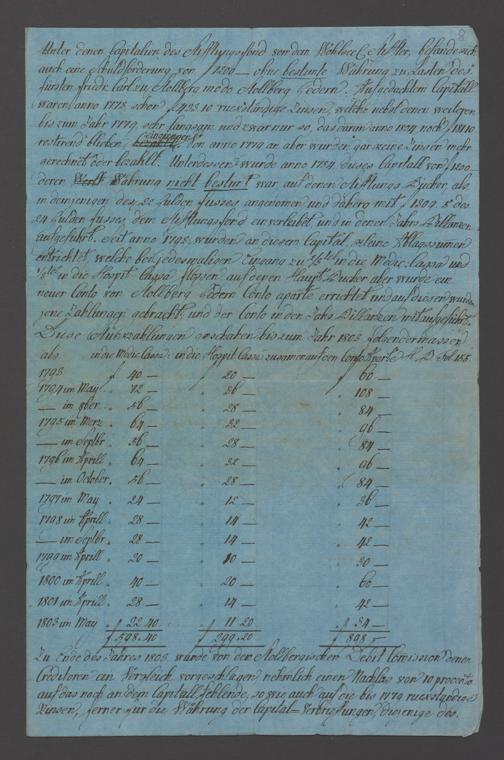 Unter denen Capitalien des Stifftungsfond von dem Wohlsel. Stiffter, befande sich
auch eine Schuldforderung von f 1200 — ohne bestimte Währung zu Lasten des
fürsten fridr. Carl zu Stollberg modo Stollberg Gedern. Auf gedachtem Capitall
waren anno 1773 schon rückständige Zinsen, welche nebst denen weiteren
bis zum Jahr 1779 sehr langsam und zwar nur so, das darann anno 1874 noch
restirend blieben, von anno 1779 an aber wurden gar keine Zinsen mehr
gerechnet oder bezahlt. Unterdessen wurde anno 1784 dieses Capitall von f 1200 —
deren Währung nicht bestimt war, auf denen Stifftungs Bücher, als
in demjenigen des 22 fulden fusses angenomen und dahero mit f 1309. 5 des
24 fulden fusses, dem Stifftungsfond einverleibt und in denen Jahrs Billanzen
aufgeführt. Seit anno 1793 wurden an diesem Capital, kleine Abschlagssummen
entrichtet, welche bey jedesmaligem Eingang zu 2/3tel in die Medic: Cassa und
1/3tel in die Hospit Cassa flossen, auf denen Haupt Bücher aber wurde ein
neuer Conto von Stollberg Gedern Conto aparte errichtet und auf diesen wurden
jene Zahlungen gebracht und der Conto in den Jahrs Billanzen mit aufgeführt.
Diese Auszahlungen geschahen bis zum Jahr 1803 folgendermassen
als. in die Medic: Cassa: in die Hospit Cassa zusamen auf den Conto Aparte Fol 155
1793 f 40 — " 20 — f 60 —
1794 im May " 72 — " 36 — " 108 —
— im 8ber " 56 — " 28 — " 84 —
1795 im Merz " 64 — " 32 — " 96 —
— im Septbr " 56 — " 28 — " 84 —
1796 im Aprill " 64 — " 32 — " 96 —
— im October " 56 — " 28 — " 84 —
1797 im May " 24 — " 12 — " 36 —
1798 im Aprill " 28 — " 14 — " 42 —
— im Septbr " 28 — " 14 — " 42 —
1799 im Aprill " 20 — " 10 — " 30 —
1800 im Aprill " 40 — " 20 — " 60 —
1801 im Aprill " 28 — " 14 — " 42 —
1803 im May f 22.40 f 11.20 f 34 —
f 598.40 f 299.20 f 898 —
Zu Ende des Jahres 1803 wurde von der Stolbergischen Debit Comission denen
Creditoren ein Vergleich vorgeschlagen nehmlich einen Nachlas von 10 procento
auf das noch an dem Capitall fehlende, so wie auch auf die bis 1779 rückständige
Zinsen, ferner für die Währung der Capital-Verbriefungen, diejenige des